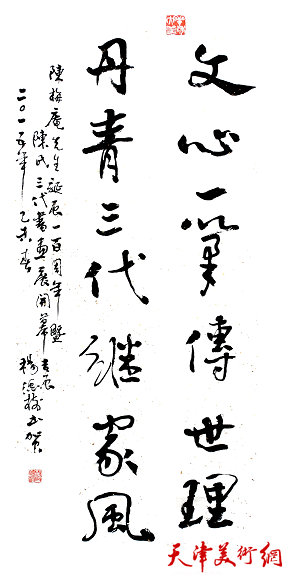 文心一笔傳世理
丹青三代继家風
陸梅庵先生誕辰一百周年暨
陳氏三代書画展開幕志庆
二〇一五年乙未春 楊德树书贺
天津美術網